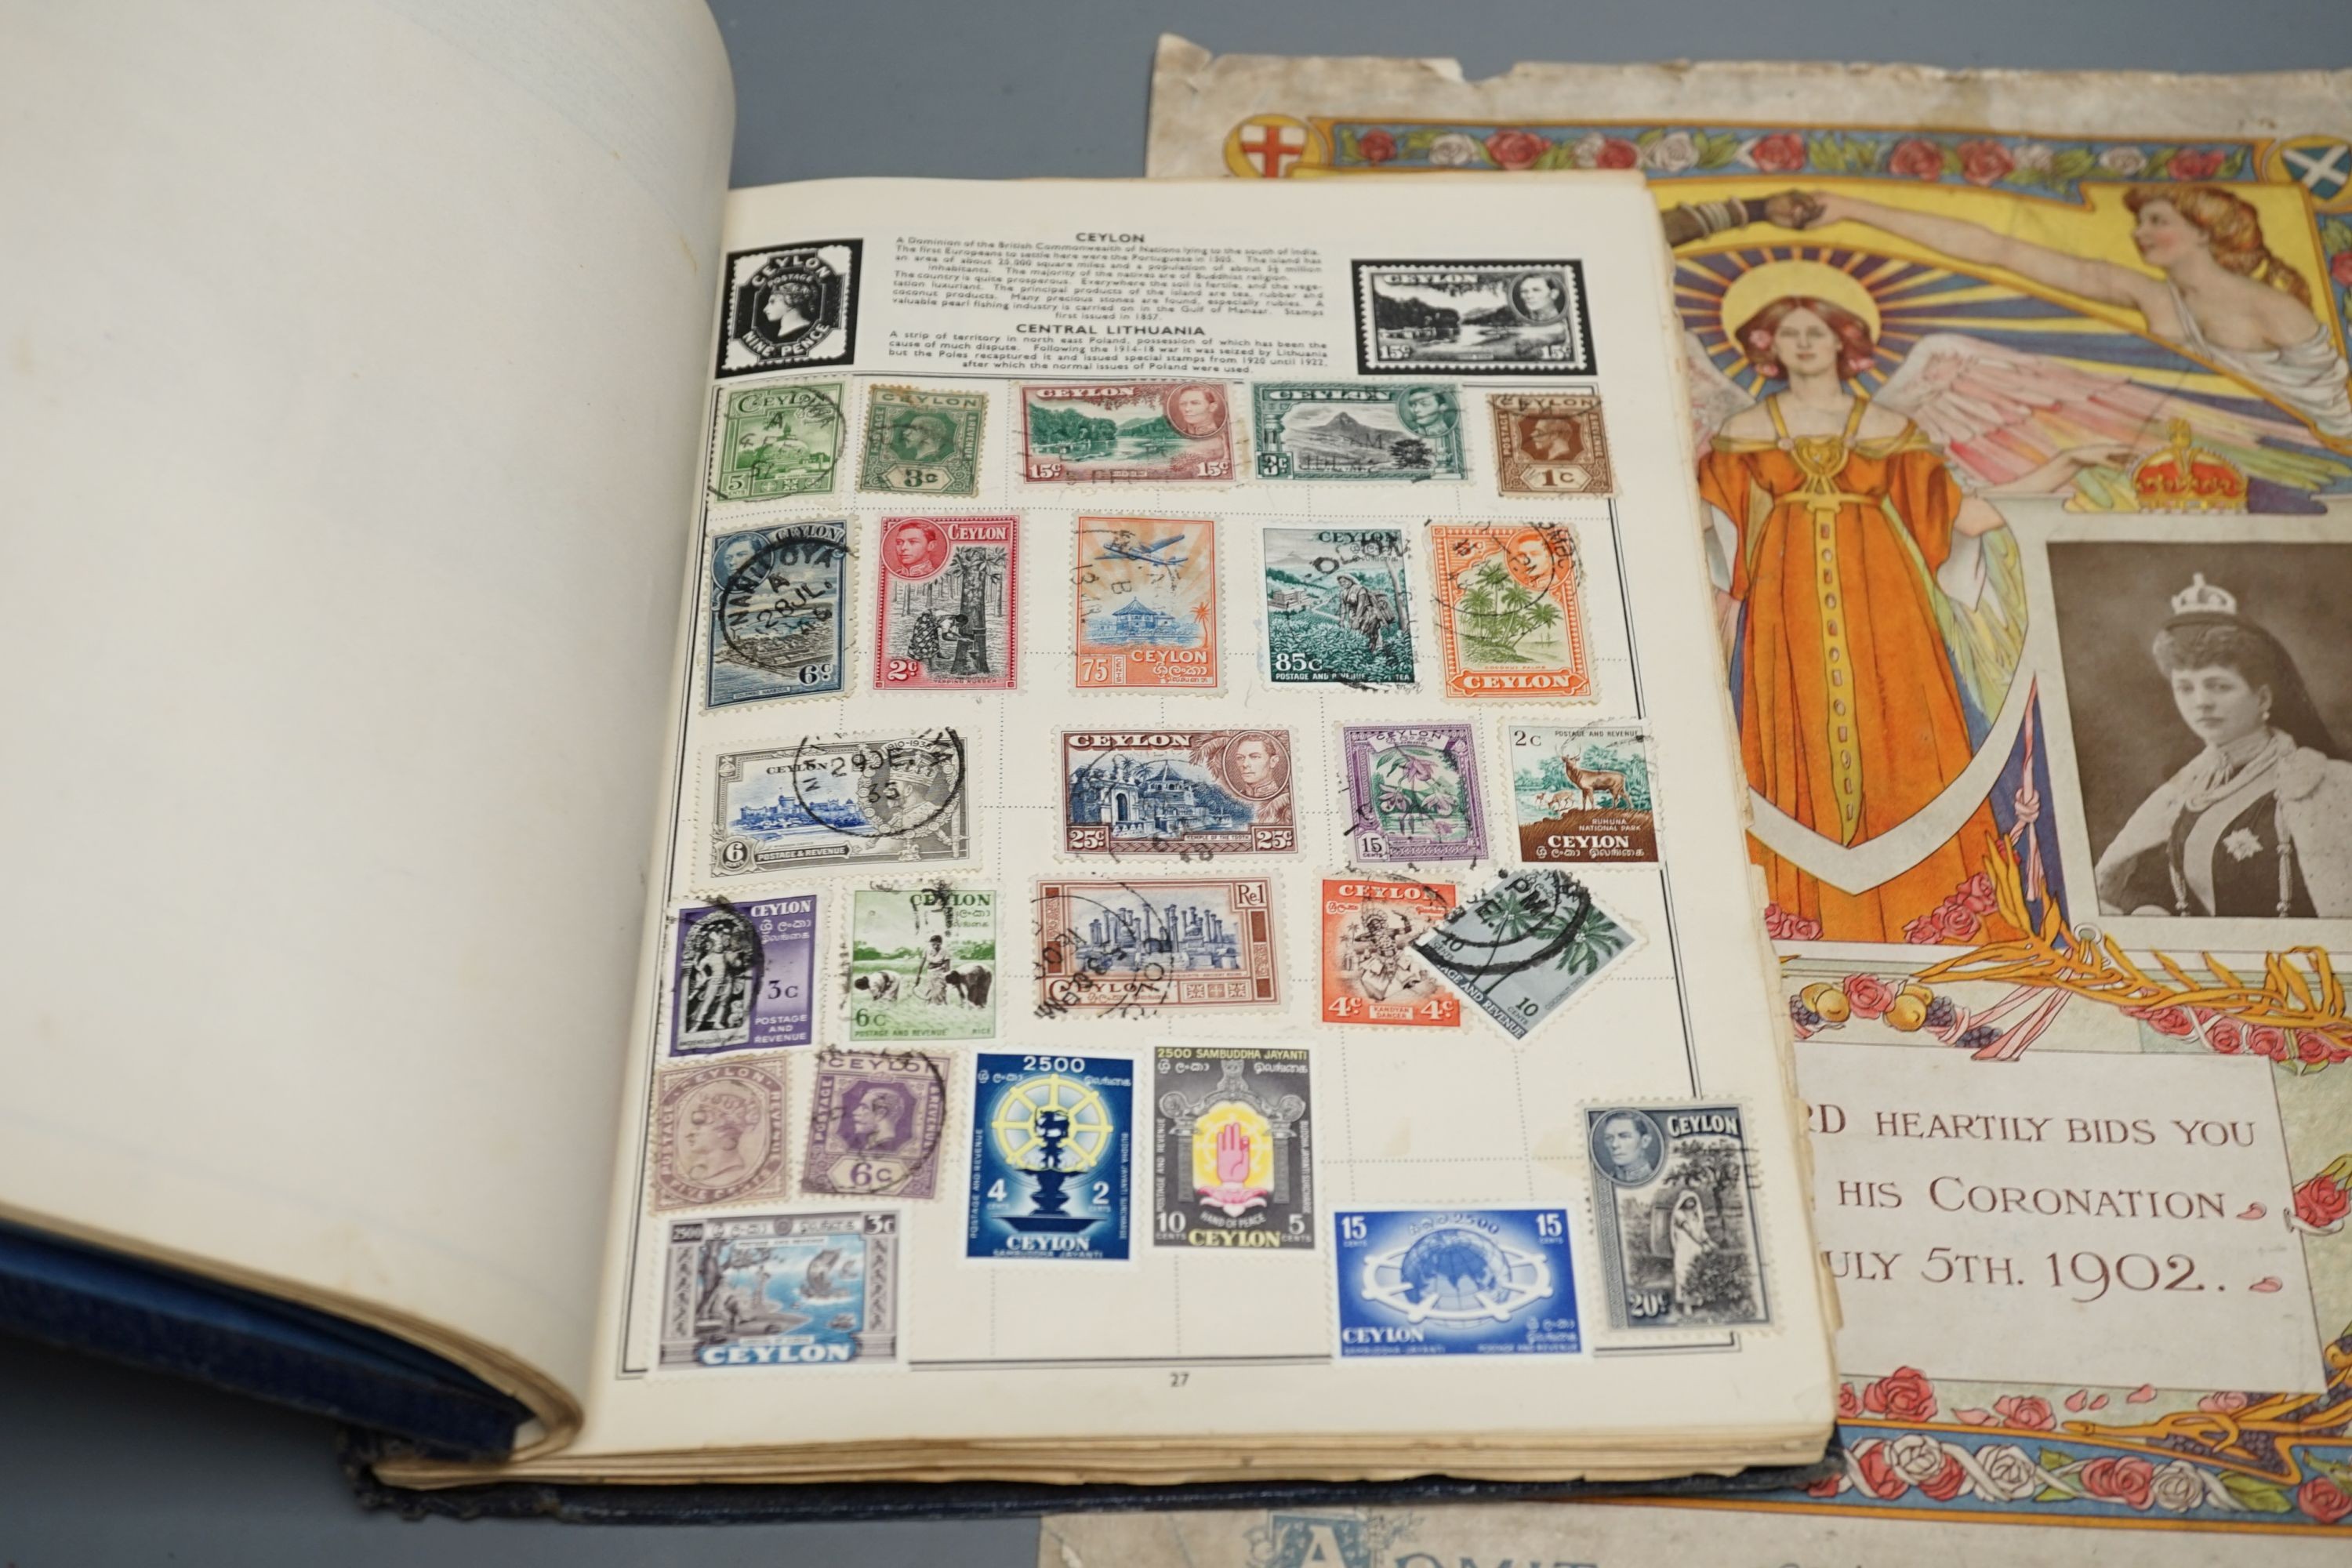 CEYLON
A Dominion of the British Commonwealth of Nations lying to the south of India.
The first Europeans to settle here were the Portuguese in 1505. The island has
an area of about 25,000 square miles and a population of about 5½ million
inhabitants. The majority of the natives are of Buddhist religion.
The country is quite prosperous. Everywhere the soil is fertile, and the vege-
tation luxuriant. The principal products of the island are tea, rubber and
coconut products. Many precious stones are found, especially rubies. A
valuable pearl fishing industry is carried on in the Gulf of Manaar. Stamps
first issued in 1857.
CENTRAL LITHUANIA
A strip of territory in north east Poland, possession of which has been the
cause of much dispute. Following the 1914-18 war it was seized by Lithuania
but the Poles recaptured it and issued special stamps from 1920 until 1922,
after which the normal issues of Poland were used.
CEYLON
POSTAGE
NINE PENCE
CEYLON
15c 15c
CEYLON
5
CEYLON
3c
CEYLON
15c 15c
CEYLON
3c
CEYLON
POSTAGE REVENUE
1c
CEYLON
NANU OYA
A
28 JL
6c
CEYLON
2c
75
CEYLON
ලංකා
இலங்கை
CEYLON
85c
POSTAGE AND REVENUE TEA
CEYLON
CEYLON
1910-1935
29 DE
35
6
POSTAGE & REVENUE
CEYLON
TEMPLE OF THE TOOTH
25c 25c
CEYLON
15
CENTS
2c
POSTAGE AND REVENUE
RUHUNA
NATIONAL PARK
CEYLON
ශ්‍රී ලංකා இலங்கை
CEYLON
ශ්‍රී ලංකා
இலங்கை
3c
POSTAGE
AND
REVENUE
CEYLON
ලංකා
இலங்கை
6c
POSTAGE AND REVENUE RICE
Re1
CEYLON
CEYLON
4c 4c
KANDYAN
DANCER
PM
10
AGE AND REVENUE
10
CENTS
CEYLON
POSTAGE REVENUE
FIVE CENTS
CEYLON
POSTAGE & REVENUE
6c
2500
ශ්‍රී ලංකා இலங்கை
POSTAGE AND REVENUE
4 2
CENTS CENTS
CEYLON
SAMBUDDHA JAYANTI
2500 SAMBUDDHA JAYANTI
ශ්‍රී ලංකා இலங்கை
POSTAGE AND REVENUE
HAND OF PEACE
10 5
CENTS CENTS
CEYLON
CEYLON
20c
2500
3c
CEYLON
15 15
CENTS CENTS
2500
CEYLON
ශ්‍රී ලංකා
இலங்கை
SAMBUDDHA JAYANTI POSTAGE AND REVENUE
27
RD HEARTILY BIDS YOU
HIS CORONATION
ULY 5TH. 1902.
ADMIT